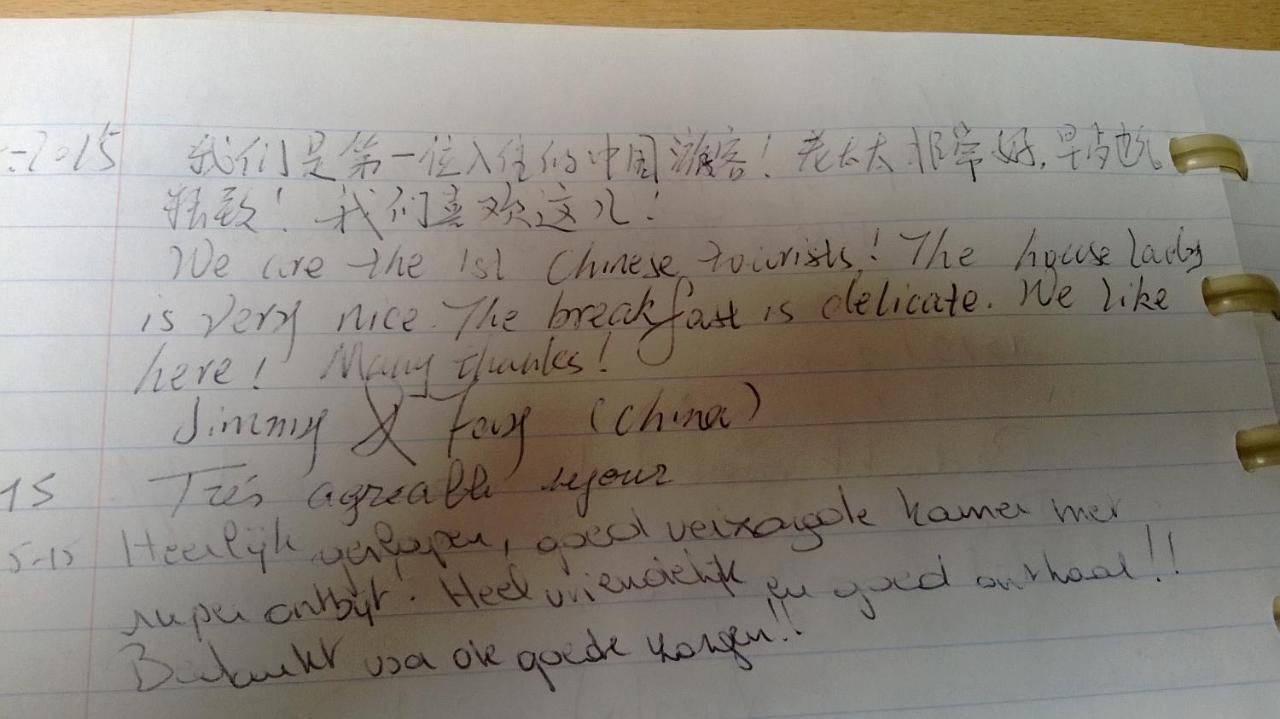 -2015 我们是第一位入住的中国游客！老太太非常好，早点也
精致！我们喜欢这儿！
We are the 1st Chinese tourists! The house lady
is very nice. The breakfast is delicate. We like
here! Many thanks!
Jimmy & Fay (China)
15 Très agréable séjour
5-15 Heerlijk geslapen, goed verzorgde kamer met
super ontbijt. Heel vriendelijk en goed onthaal!!
Bedankt voor de goede zorgen!!